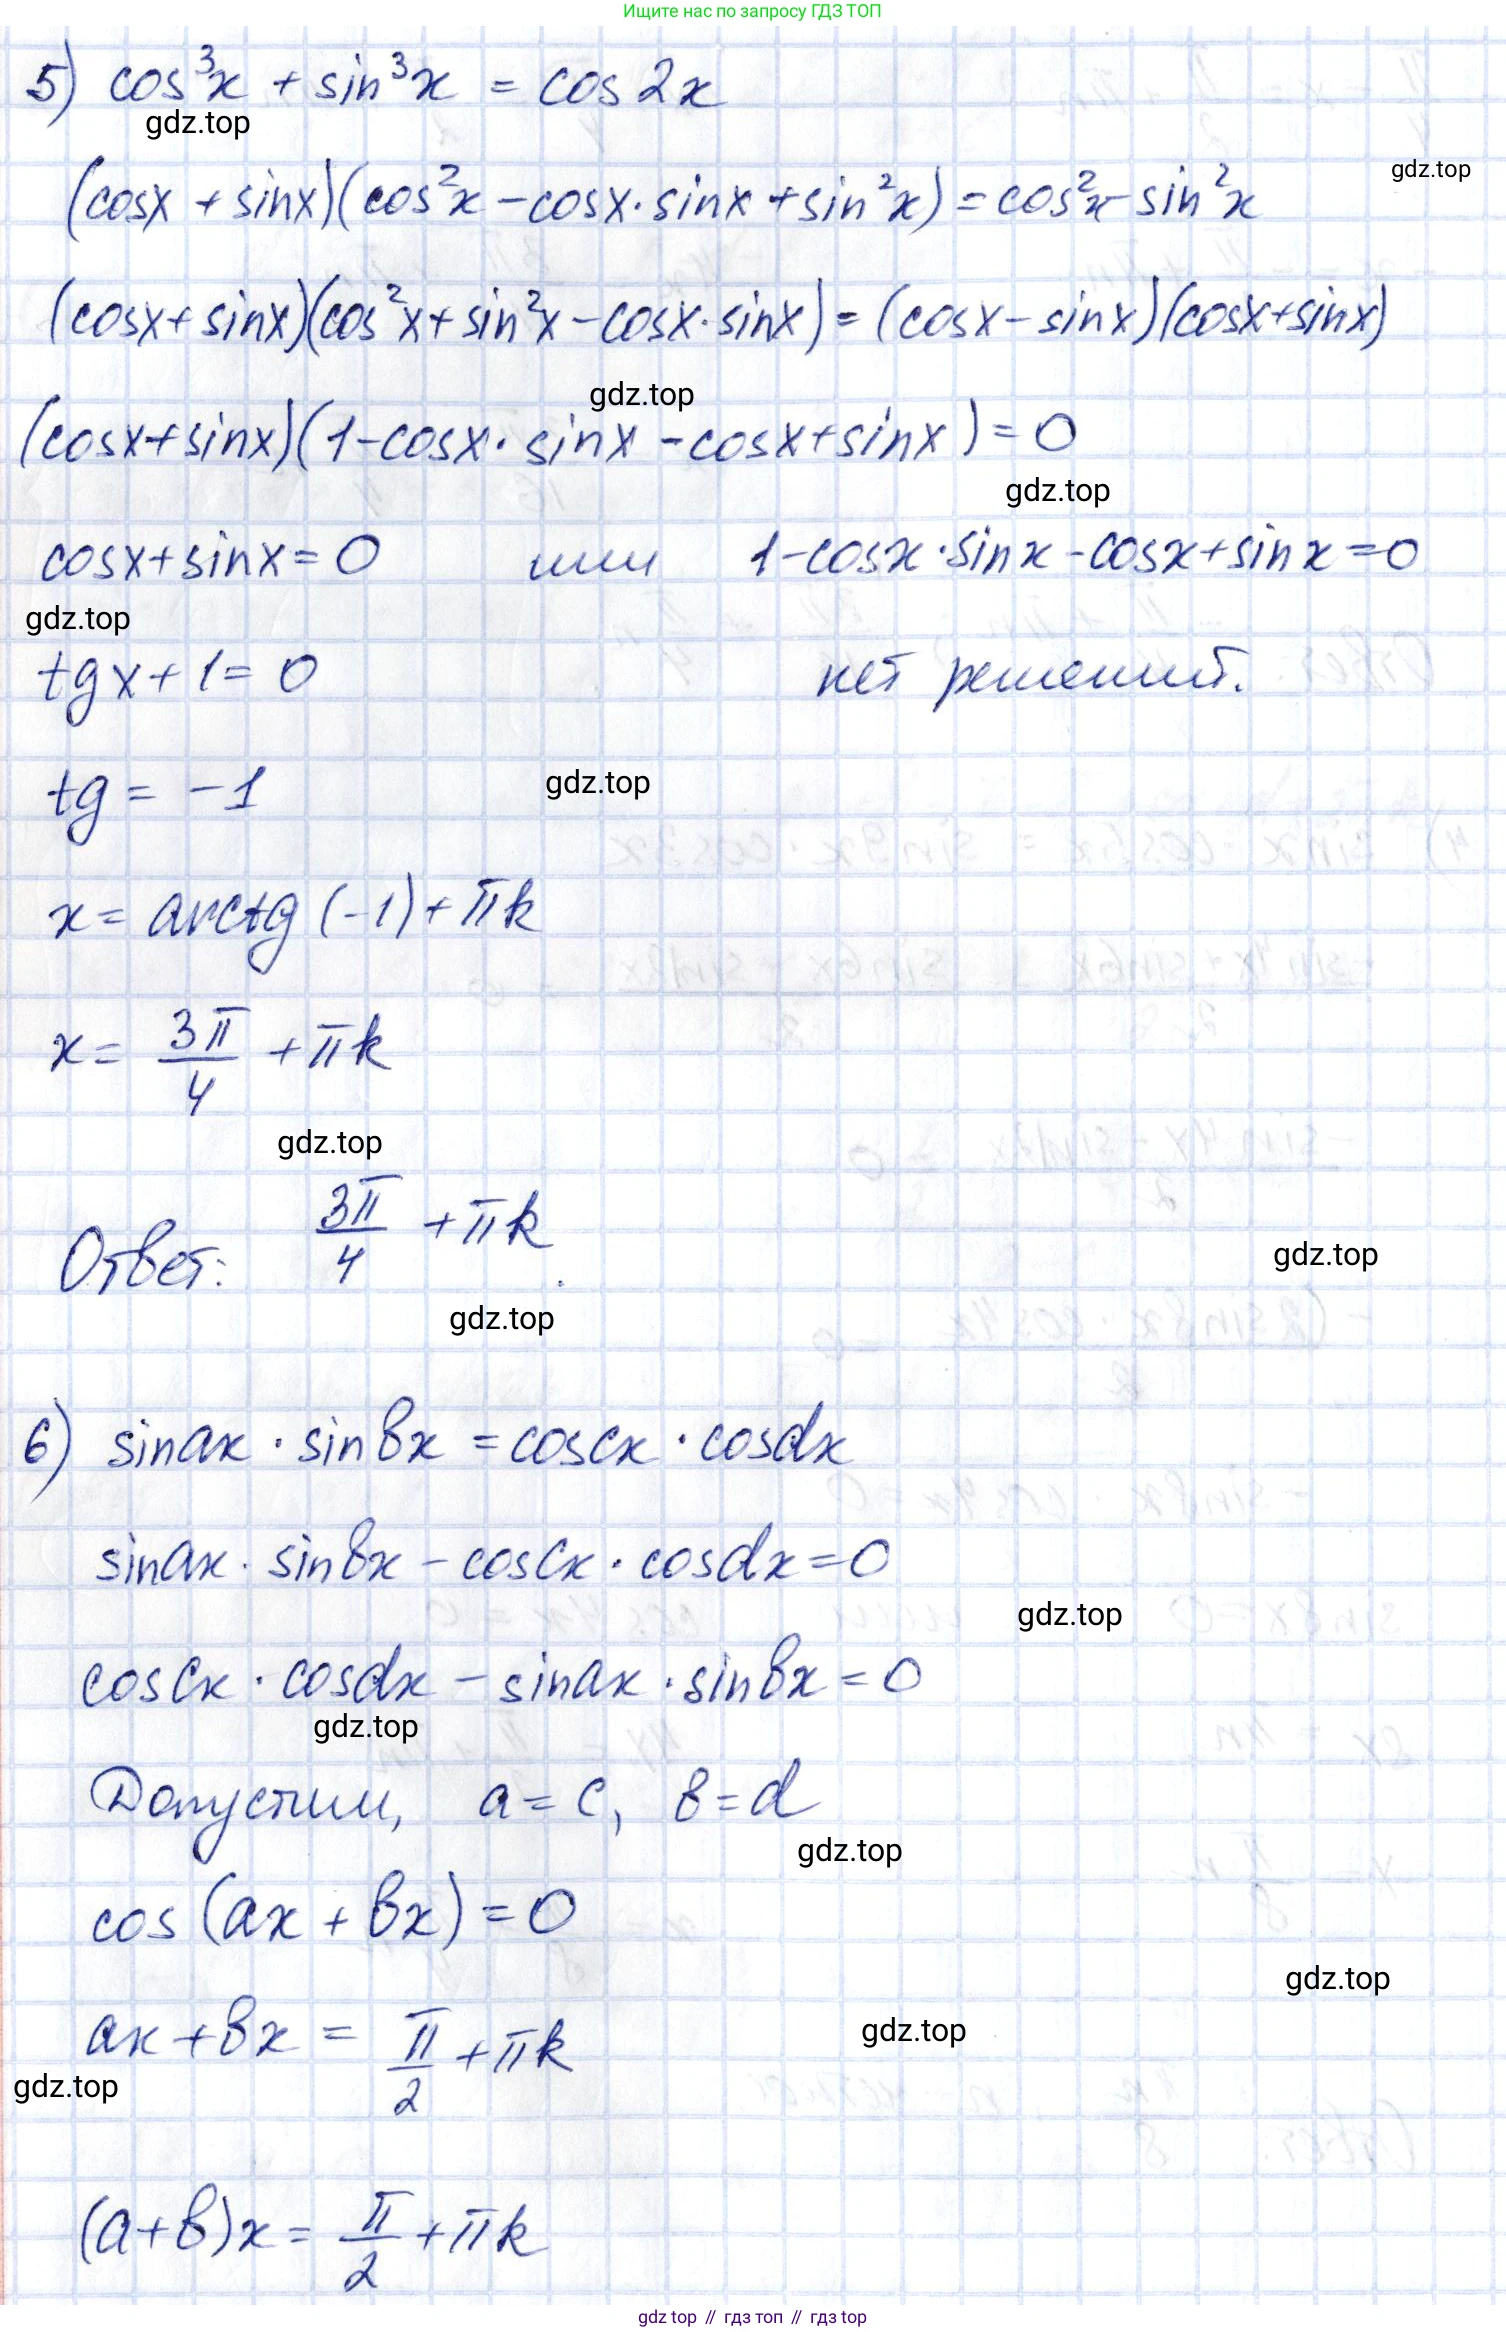 Ищите нас по запросу ГДЗ ТОП
5) cos³x + sin³x = cos2x
gdz.top
gdz.top
(cosx + sinx)(cos²x - cosx·sinx + sin²x) = cos²x - sin²x
(cosx+sinx)(cos²x+sin²x-cosx·sinx) = (cosx-sinx)(cosx+sinx)
gdz.top
(cosx+sinx)(1-cosx·sinx-cosx+sinx)=0
gdz.top
cosx+sinx=0 или 1-cosx·sinx-cosx+sinx=0
gdz.top
tgx+1=0 нет решений.
tg = -1
gdz.top
x = arctg(-1)+πk
x = 3π/4 + πk
gdz.top
Ответ: 3π/4 + πk.
gdz.top
gdz.top
6) sinax · sinвx = coscx · cosdx
sinax · sinвx - coscx · cosdx = 0
gdz.top
coscx · cosdx - sinax · sinвx = 0
gdz.top
Допустим, a = c, в = d
gdz.top
cos(ax + вx) = 0
gdz.top
ax + вx = π/2 + πk
gdz.top
gdz.top
(a+в)x = π/2 + πk
gdz top // гдз топ // гдз top